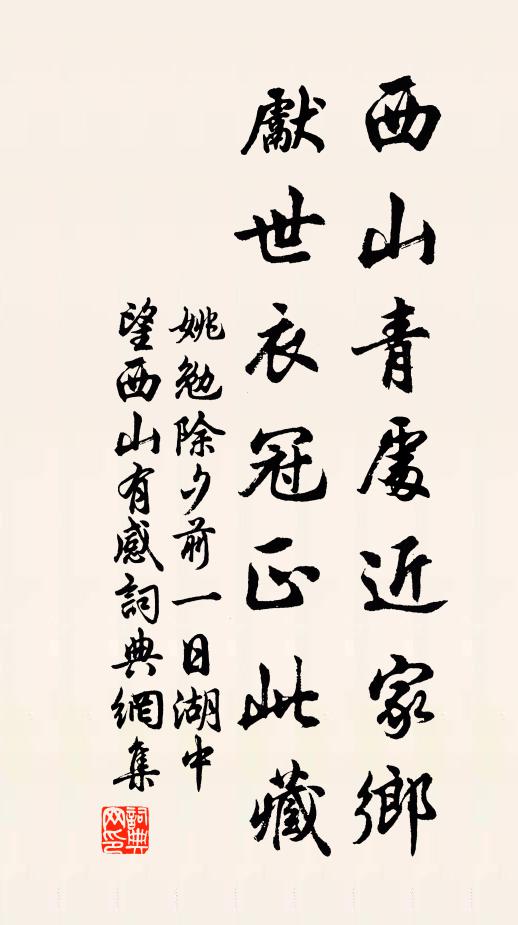 西山青處近家鄉
獻世衣冠正此藏
姚勉除夕前一日湖中
望西山有感詞典網集
詞典
网印